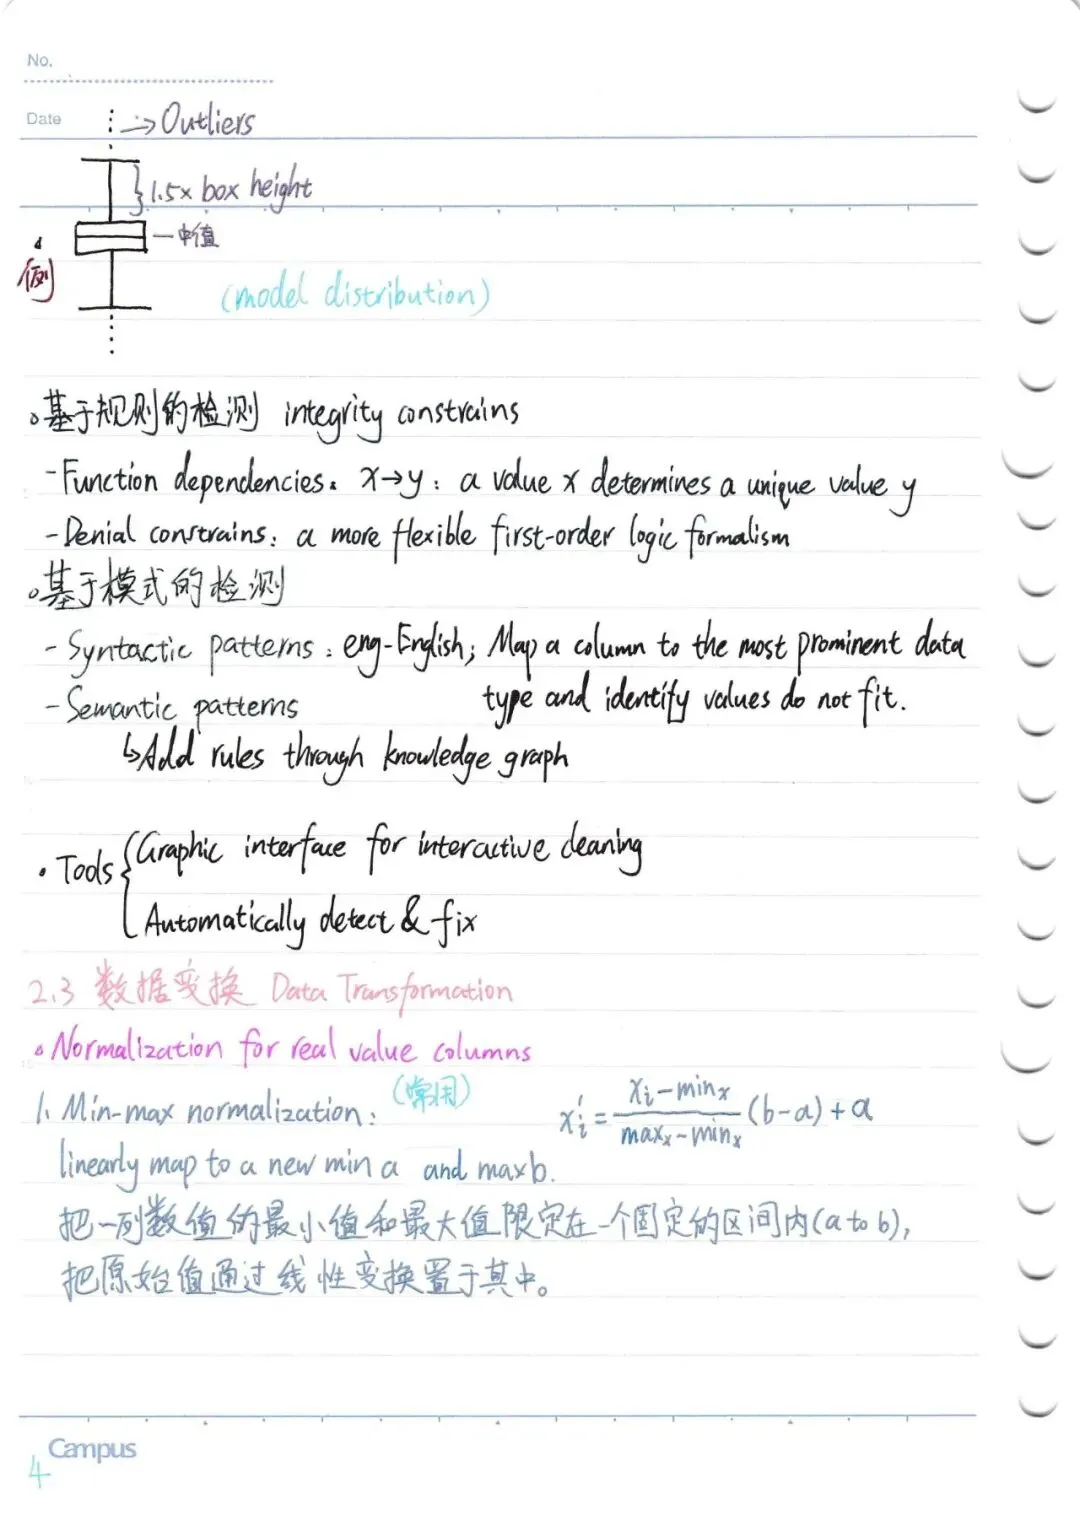 No.
Date
→Outliers
1.5× box height
中值
例
(model distribution)
。基于规则的检测 integrity constrains
-Function dependencies: x→y: a value x determines a unique value y
-Denial constrains: a more flexible first-order logic formalism
。基于模式的检测
- Syntactic patterns: eng-English; Map a column to the most prominent data
type and identify values do not fit.
-Semantic patterns
↳Add rules through knowledge graph
• Tools
Graphic interface for interactive cleaning
Automatically detect & fix
2.3 数据变换 Data Transformation
• Normalization for real value columns
1. Min-max normalization: (常用) x'ᵢ = (xᵢ - minₓ)/(maxₓ - minₓ) (b-a) + a
linearly map to a new min a and max b.
把一列数值的最小值和最大值限定在一个固定的区间内(a to b),
把原始值通过线性变换置于其中。
Campus
4